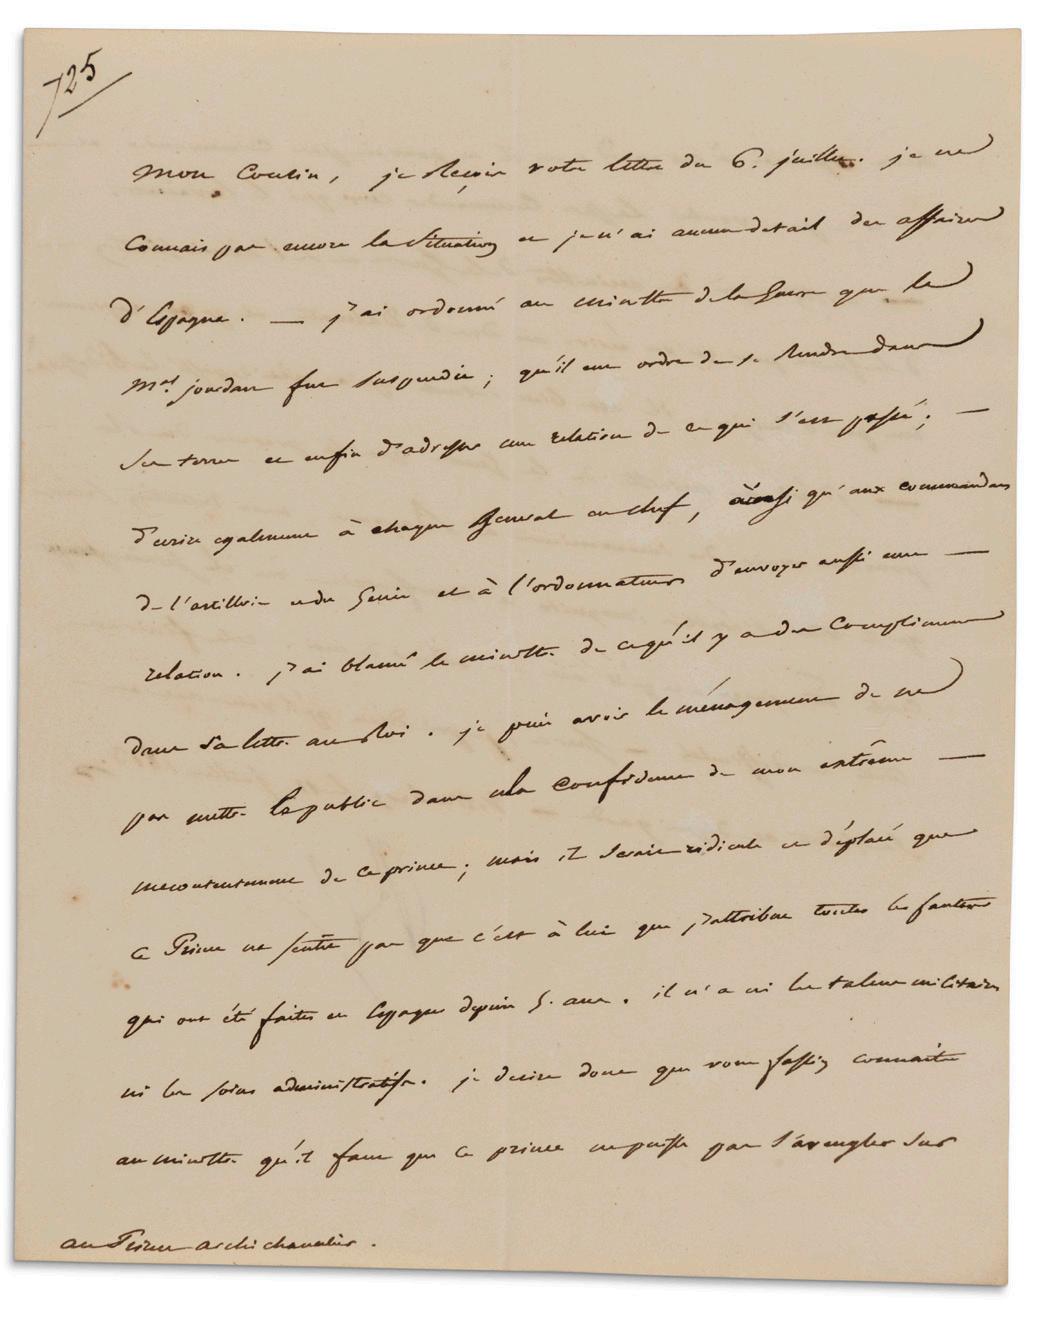 725
Mon Cousin, je reçois votre lettre du 6. juillet. je ne
connais pas encore la situation et je n'ai aucun detail des affaires
d'Espagne. — j'ai ordonné au ministre de la Guerre que le
Mal. jourdan fut suspendu; qu'il eut ordre de se rendre dans
ses terres et enfin d'adresser une relation de ce qui s'est passé; —
d'ecrire egalement à chaque General en chef, ainsi qu'aux commandans
de l'artillerie et du Genie et à l'ordonnateur d'envoyer aussi une —
relation. j'ai blamé le ministre de ce qu'il y a des Complimens
dans sa lettre au Roi. je puis avoir le ménagement de ne
pas mettre le public dans la confidence de mon extrême —
mecontentement de ce prince; mais il serait ridicule et déplacé que
ce Prince ne sentit pas que c'est à lui que j'attribue toutes les fautes
qui ont été faites en Espagne depuis 5. ans. il n'a ni les talens militaires
ni les soins administratifs. je desire donc que vous fassiez connaitre
au ministre qu'il faut que ce prince ne puisse pas s'aveugler sur
au Prince archichancelier.